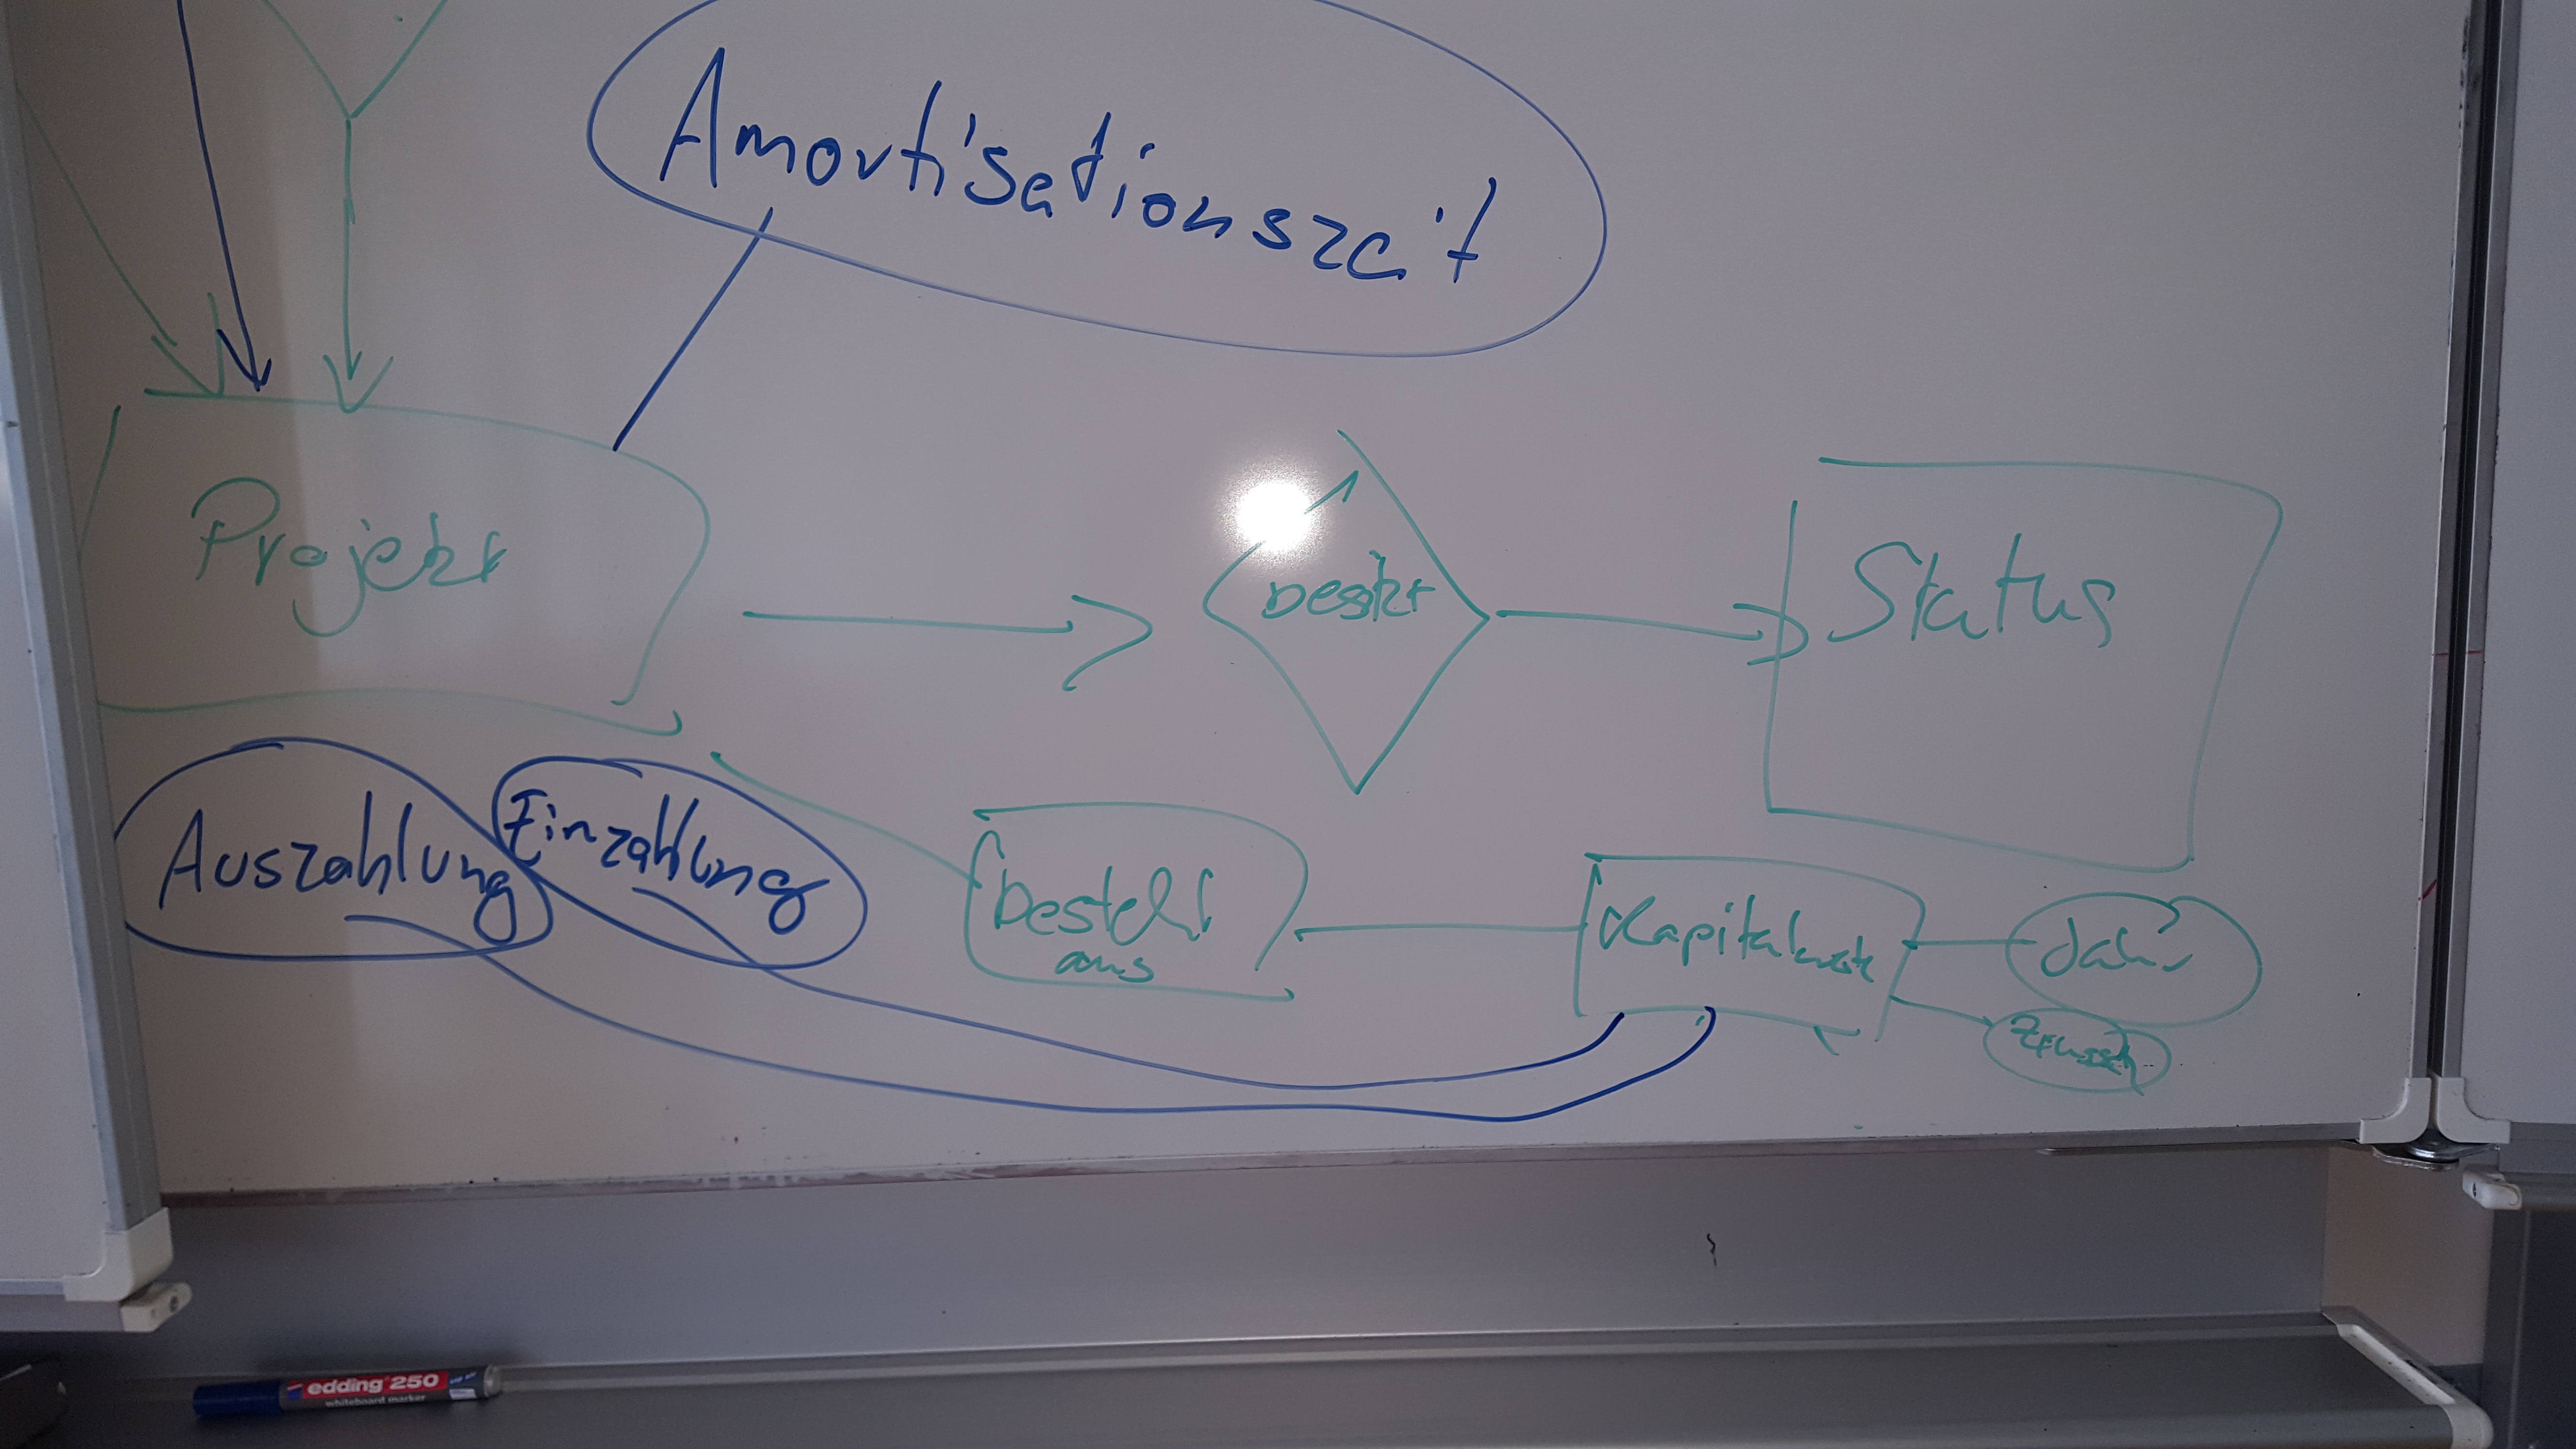 Amortisationszeit
Projekt
besitzt
Status
Auszahlung
Einzahlung
besteht
aus
Kapitalwerte
Jahr
edding 250
whiteboard marker